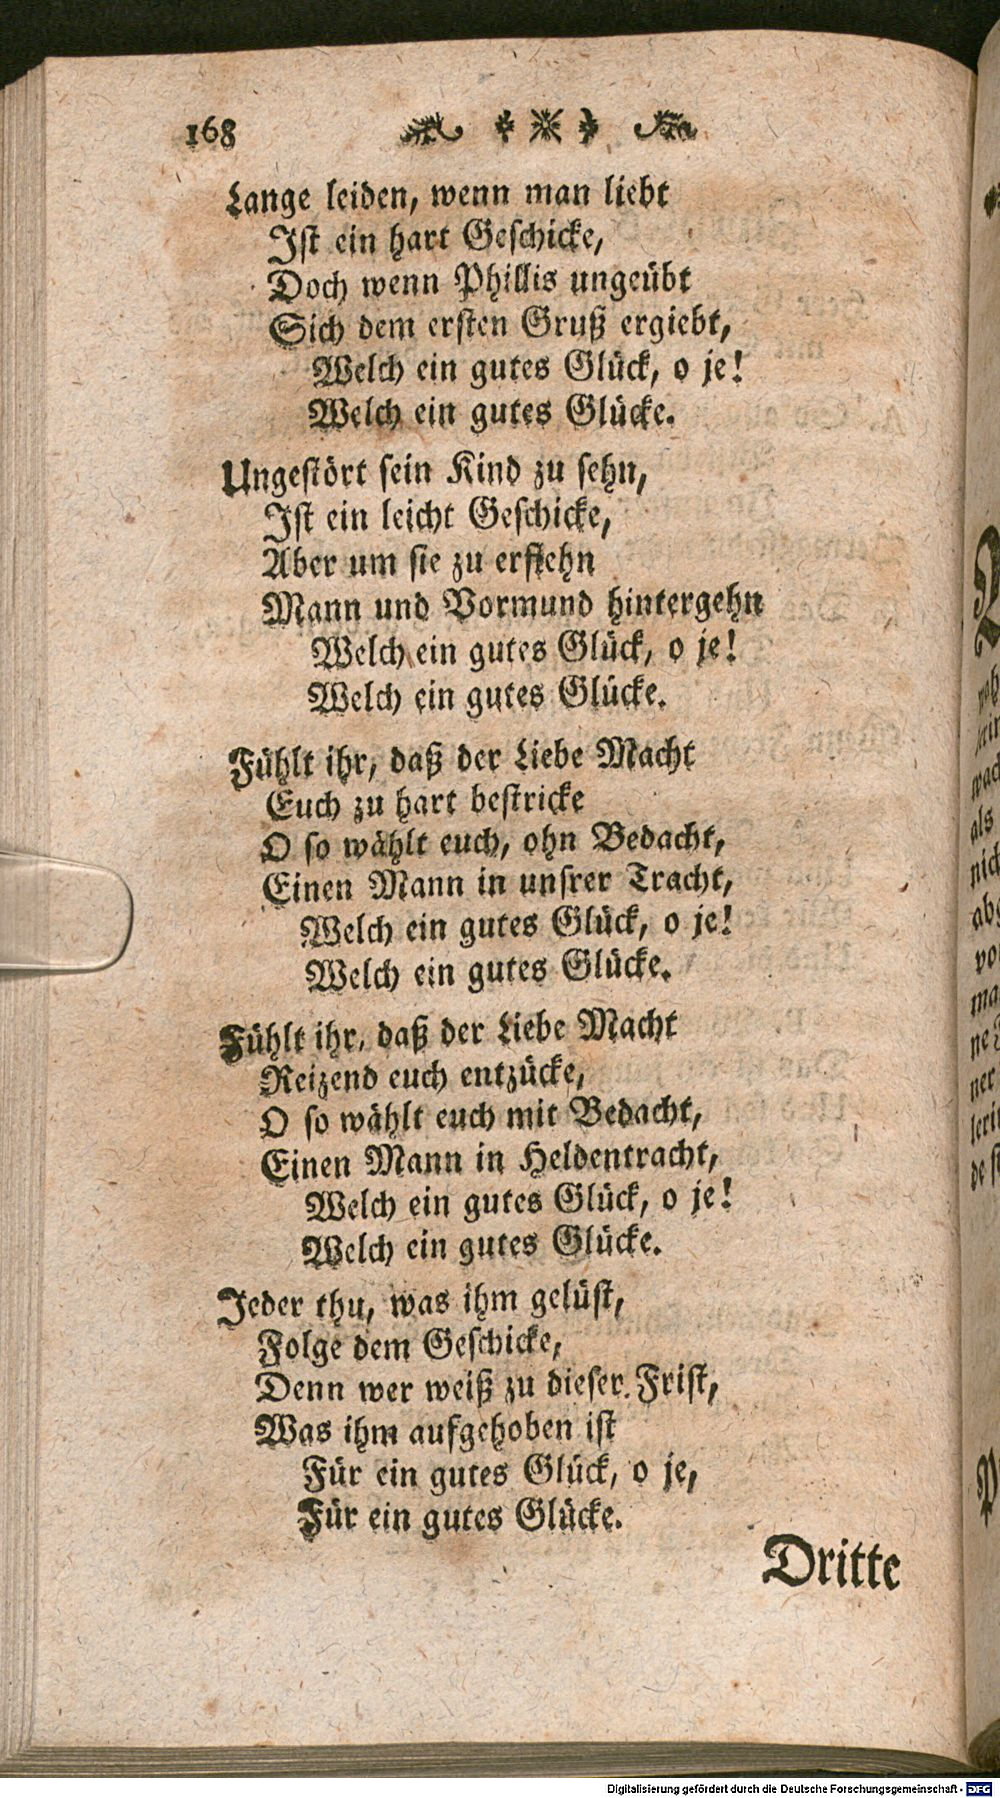 168
Lange leiden, wenn man liebt
Ist ein hart Geschicke,
Doch wenn Phillis ungeübt
Sich dem ersten Gruß ergiebt,
Welch ein gutes Glück, o je!
Welch ein gutes Glücke.
Ungestört sein Kind zu sehn,
Ist ein leicht Geschicke,
Aber um sie zu erflehn
Mann und Vormund hintergehn
Welch ein gutes Glück, o je!
Welch ein gutes Glücke.
Fühlt ihr, daß der Liebe Macht
Euch zu hart bestricke
O so wählt euch, ohn Bedacht,
Einen Mann in unsrer Tracht,
Welch ein gutes Glück, o je!
Welch ein gutes Glücke.
Fühlt ihr, daß der Liebe Macht
Reizend euch entzücke,
O so wählt euch mit Bedacht,
Einen Mann in Heldentracht,
Welch ein gutes Glück, o je!
Welch ein gutes Glücke.
Jeder thu, was ihm gelüst,
Folge dem Geschicke,
Denn wer weiß zu dieser Frist,
Was ihm aufgehoben ist
Für ein gutes Glück, o je,
Für ein gutes Glücke.
Dritte
Digitalisierung gefördert durch die Deutsche Forschungsgemeinschaft - DFG